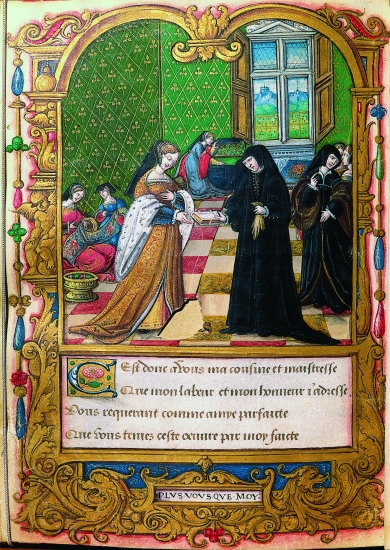 CEst donc a Vous ma cousine et maistresse
Que mon labeur et mon honneur i'adresse.
Vous requerant comme amye parfaitte
Que Vous tenes ceste œuure par moy faicte
PLVS VOVS QVE MOY